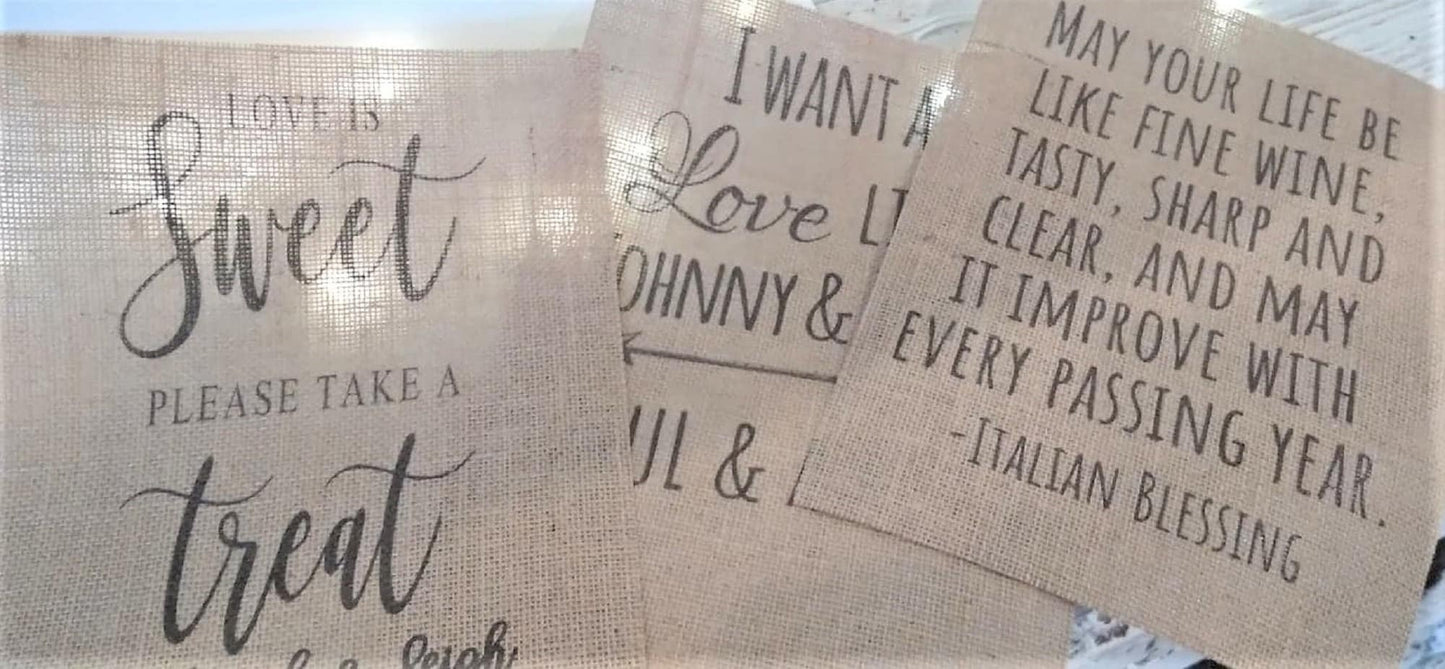 LOVE IS
Sweet
PLEASE TAKE A
treat
Leigh
I WANT A
Love LI
OHNNY &
UL &
MAY YOUR LIFE BE
LIKE FINE WINE,
TASTY, SHARP AND
CLEAR, AND MAY
IT IMPROVE WITH
EVERY PASSING YEAR.
-ITALIAN BLESSING